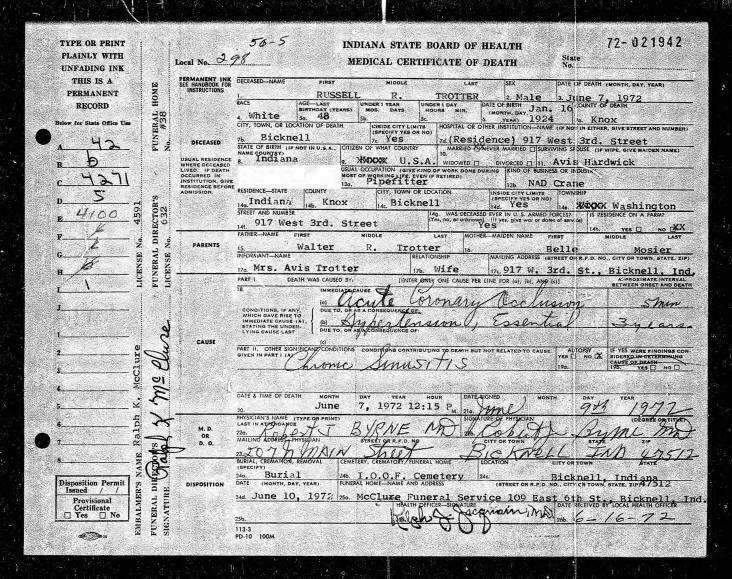 TYPE OR PRINT
PLAINLY WITH
UNFADING INK
THIS IS A
PERMANENT
RECORD
Below for State Office Use
A 42
B
C 4271
D 5
E 4100
F
G
H
I 1
J
1
2
3
4
5
6
Disposition Permit
Issued / /
Provisional
Certificate
Yes No
EMBALMER'S NAME Ralph K. McClure LICENSE No. 4591
FUNERAL DIRECTOR'S SIGNATURE Ralph K McClure
FUNERAL DIRECTOR'S LICENSE No. 632 FUNERAL HOME #38
56-5
Local No. 298
INDIANA STATE BOARD OF HEALTH
MEDICAL CERTIFICATE OF DEATH
72-021942
State
No.
PERMANENT INK
SEE HANDBOOK FOR
INSTRUCTIONS
DECEASED—NAME FIRST MIDDLE LAST SEX DATE OF DEATH (MONTH, DAY, YEAR)
1. RUSSELL R. TROTTER 2. Male 3. June 7, 1972
RACE AGE—LAST BIRTHDAY (YEARS) UNDER 1 YEAR MOS. DAYS UNDER 1 DAY HOURS MIN. DATE OF BIRTH (MONTH, DAY, YEAR) COUNTY OF DEATH
4. White 5a. 48 Jan. 16 1924 Knox
DECEASED
CITY, TOWN, OR LOCATION OF DEATH INSIDE CITY LIMITS (SPECIFY YES OR NO) HOSPITAL OR OTHER INSTITUTION—NAME (IF NOT IN EITHER, GIVE STREET AND NUMBER)
7b. Bicknell 7c. Yes 7d. (Residence) 917 West 3rd. Street
USUAL RESIDENCE
WHERE DECEASED
LIVED. IF DEATH
OCCURRED IN
INSTITUTION, GIVE
RESIDENCE BEFORE
ADMISSION.
STATE OF BIRTH (IF NOT IN U.S.A., NAME COUNTRY) CITIZEN OF WHAT COUNTRY MARRIED NEVER MARRIED SURVIVING SPOUSE (IF WIFE, GIVE MAIDEN NAME)
8. Indiana 9. U.S.A. WIDOWED DIVORCED 11. Avis Hardwick
USUAL OCCUPATION (GIVE KIND OF WORK DONE DURING MOST OF WORKING LIFE, EVEN IF RETIRED) KIND OF BUSINESS OR INDUSTRY
13a. Pipefitter NAD Crane
RESIDENCE—STATE COUNTY CITY, TOWN OR LOCATION INSIDE CITY LIMITS (SPECIFY YES OR NO) TOWNSHIP
14a. Indiana 14b. Knox 14c. Bicknell 14d. Yes Washington
STREET AND NUMBER 14g. WAS DECEASED EVER IN U.S. ARMED FORCES? IS RESIDENCE ON A FARM?
14f. 917 West 3rd. Street (Yes, no, or unknown) (If yes, give war or dates of service) Yes 14h. YES NO XX
PARENTS
FATHER—NAME FIRST MIDDLE LAST MOTHER—MAIDEN NAME FIRST MIDDLE LAST
15. Walter R. Trotter 16. Belle Mosier
INFORMANT—NAME RELATIONSHIP MAILING ADDRESS (STREET OR R.F.D. NO., CITY OR TOWN, STATE, ZIP)
17a. Mrs. Avis Trotter 17b. Wife 17c. 917 W. 3rd. St., Bicknell, Ind.
PART I. DEATH WAS CAUSED BY: [ENTER ONLY ONE CAUSE PER LINE FOR (a), (b), AND (c)] APPROXIMATE INTERVAL BETWEEN ONSET AND DEATH
18. IMMEDIATE CAUSE
(a) Acute Coronary Occlusion 5 min
CONDITIONS, IF ANY,
WHICH GAVE RISE TO
IMMEDIATE CAUSE (A),
STATING THE UNDER-
LYING CAUSE LAST
DUE TO, OR AS A CONSEQUENCE OF:
(b) Hypertension, Essential 3 years
DUE TO, OR AS A CONSEQUENCE OF:
(c)
CAUSE
PART II. OTHER SIGNIFICANT CONDITIONS CONDITIONS CONTRIBUTING TO DEATH BUT NOT RELATED TO CAUSE GIVEN IN PART I (A) AUTOPSY YES NO X IF YES WERE FINDINGS CONSIDERED IN DETERMINING CAUSE OF DEATH
Chronic Sinusitis 19a. 19b. YES NO
DATE & TIME OF DEATH MONTH DAY YEAR HOUR DATE SIGNED MONTH DAY YEAR
20. June 7, 1972 12:15 P.M. 21a. June 9th 1972
M.D.
OR
D.O.
PHYSICIAN'S NAME (TYPE OR PRINT) LAST IN ATTENDANCE SIGNATURE OF PHYSICIAN (DEGREE OR TITLE)
22a. Robert J BYRNE MD Robert J Byrne MD
MAILING ADDRESS STREET OR R.F.D. NO. CITY OR TOWN STATE ZIP
23. 207 N MAIN Street BICKNELL IND 47512
DISPOSITION
BURIAL, CREMATION, REMOVAL (SPECIFY) CEMETERY, CREMATORY, FUNERAL HOME LOCATION CITY OR TOWN STATE
24a. Burial 24b. I.O.O.F. Cemetery 24c. Bicknell, Indiana
DATE (MONTH, DAY, YEAR) FUNERAL HOME—NAME AND ADDRESS (STREET OR R.F.D. NO., CITY OR TOWN, STATE, ZIP) 47512
24d. June 10, 1972 25a. McClure Funeral Service 109 East 6th St., Bicknell, Ind.
HEALTH OFFICER—SIGNATURE DATE RECEIVED BY LOCAL HEALTH OFFICER
25b. Ralph J. Jacqmain, MD 26b. 6-16-72
113-3
PD-10 100M